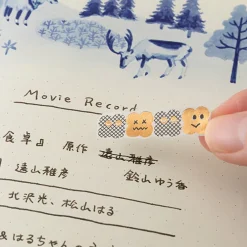 Movie Record
食卓』 原作 遠山雅彦
遠山雅彦 鈴山ゆう番
北沢光、松山はる
&はるちゃんの